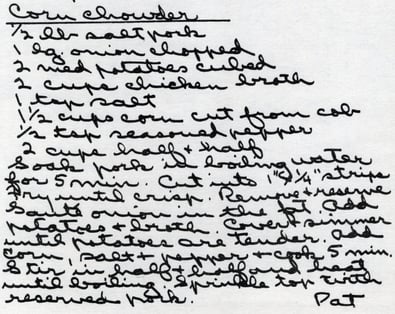 Corn Chowder
1/2 lb salt pork
1 lg. onion chopped
2 med potatoes cubed
2 cups chicken broth
1 tsp salt
1 1/2 cups corn cut from cob
1/2 tsp seasoned pepper
2 cups half + half
Soak pork in boiling water
for 5 min. Cut into 1" x 1/4" strips
Fry until crisp. Remove + reserve
Sauté onion in the fat. Add
potatoes + broth. Cover + simmer
until potatoes are tender. Add
corn, salt + pepper + cook 5 min.
Stir in half + half and heat
until boiling. Sprinkle top with
reserved pork. Pat